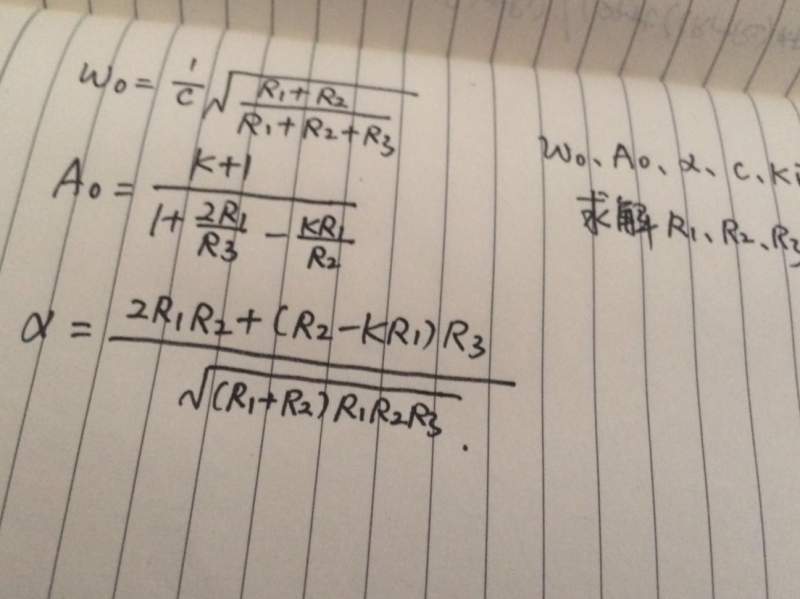 W₀ = 1/C √((R₁+R₂)/(R₁+R₂+R₃))
A₀ = (K+1)/(1+2R₁/R₃ - KR₁/R₂)
α = (2R₁R₂+(R₂-KR₁)R₃)/√((R₁+R₂)R₁R₂R₃).
W₀、A₀、α、C、K
求解 R₁、R₂、R₃